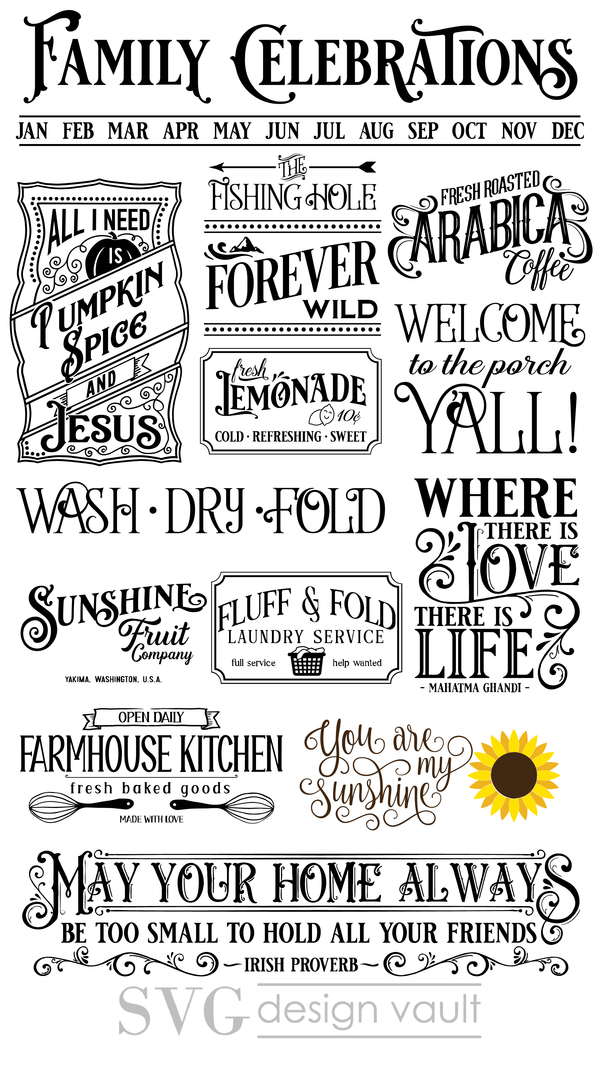 FAMILY CELEBRATIONS
JAN FEB MAR APR MAY JUN JUL AUG SEP OCT NOV DEC
ALL I NEED
IS
PUMPKIN
SPICE
AND
JESUS
THE
FISHING HOLE
FOREVER
WILD
fresh
LEMONADE
10¢
COLD · REFRESHING · SWEET
FRESH ROASTED
ARABICA
Coffee
WELCOME
to the porch
Y'ALL!
WASH · DRY · FOLD
WHERE
THERE IS
LOVE
THERE IS
LIFE
- MAHATMA GHANDI -
SUNSHINE
Fruit
Company
YAKIMA, WASHINGTON, U.S.A.
FLUFF & FOLD
LAUNDRY SERVICE
full service help wanted
OPEN DAILY
FARMHOUSE KITCHEN
fresh baked goods
MADE WITH LOVE
You are
my
sunshine
MAY YOUR HOME ALWAYS
BE TOO SMALL TO HOLD ALL YOUR FRIENDS
IRISH PROVERB
SVG design vault